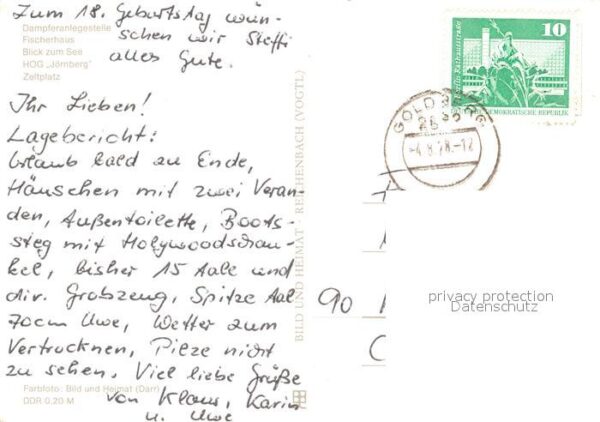 Zum 18. Geburtstag wün-
schen wir Steffi
alles Gute.
Dampferanlegestelle
Fischerhaus
Blick zum See
HOG „Jörnberg"
Zeltplatz
Ihr Lieben!
Lagebericht:
Urlaub bald zu Ende,
Häuschen mit zwei Veran-
den, Außentoilette, Boots-
steg mit Holywoodschau-
kel, bisher 15 Aale und
div. Grobzeug, Spitze Aal
70cm Uwe, Wetter zum
Vertrocknen, Pilze nicht
zu sehen. Viel liebe Grüße
von Klaus, Karin
u. Uwe
Farbfoto: Bild und Heimat (Darr)
DDR 0,20 M
BILD UND HEIMAT · REICHENBACH (VOGTL)
10
Berlin, Rathausstraße
DEMOKRATISCHE REPUBLIK
GOLDBERG
-4.8.78.-12
90
privacy protection
Datenschutz